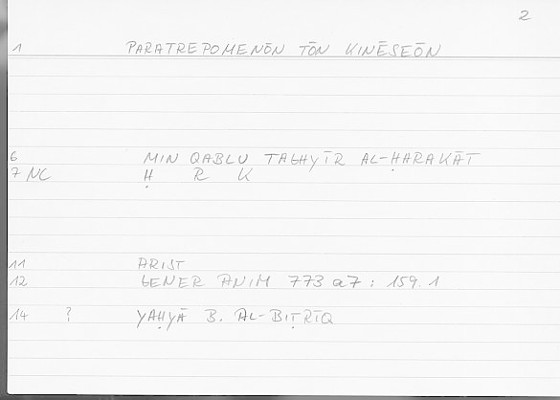 2
1 PARATREPOMENŌN TŌN KINĒSEŌN
6 MIN QABLU TAGHYĪR AL-ḤARAKĀT
7 NC Ḥ R K
11 ARIST
12 GENER ANIM 773 a7 : 159.1
14 ? YAḤYĀ B. AL-BIṬRĪQ